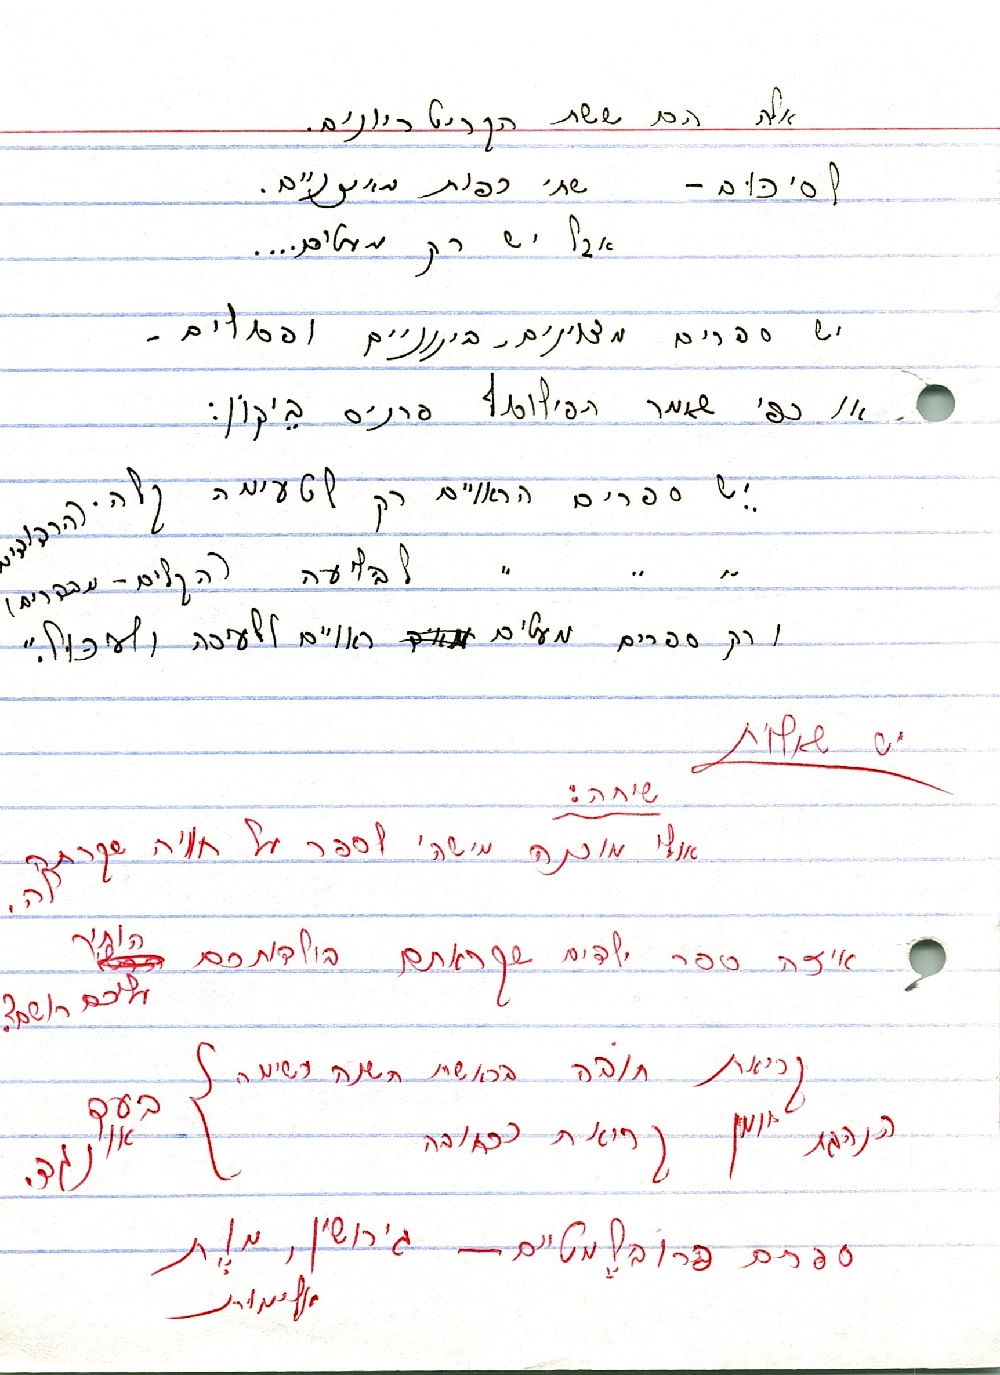 אלה הם ששת הקריטריונים.
לסיכום – שתי כפות מאזניים.
אבל יש רק מעטים....
יש ספרים מצוינים, בינוניים ופסולים –
או כפי שאמר הפילוסוף פרנסיס בֵּיקוֹן:
"יש ספרים הראויים רק לטעימה קלה. (הרבולים
" " " לבליעה (הקלים – מבדרים)
ורק ספרים מעטים ראויים ללעיסה ולעיכול."
יש שאלות
שיחה:
אולי מוכנה מישהי לספר על חוויה שקרתה
לה.
איזה ספר ילדים שקראתם בילדותכם הותיר
עליכם רושם?
קריאת חובה בראשית השנה רשימה
הנהגת יומן קריאה כחובה
בעד
או
נגד.
ספרים פרובלֶמטיים – גירושין, מוֶת
אלימות